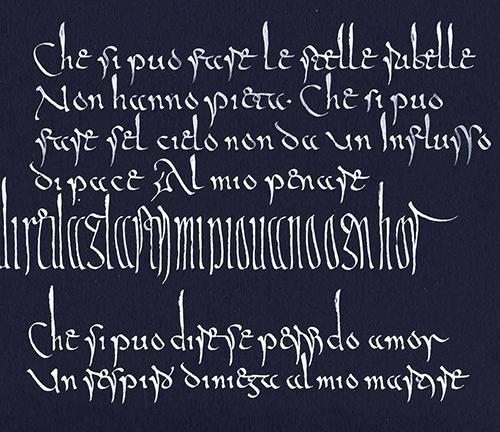 Che si puo fare le stelle rubelle
Non hanno pieta. Che si puo
fare sel cielo non da un Influsso
di pace Al mio penare
mi piouano ogn hor
Che si puo dire se perfido amor
Un respiro diniega al mio martire